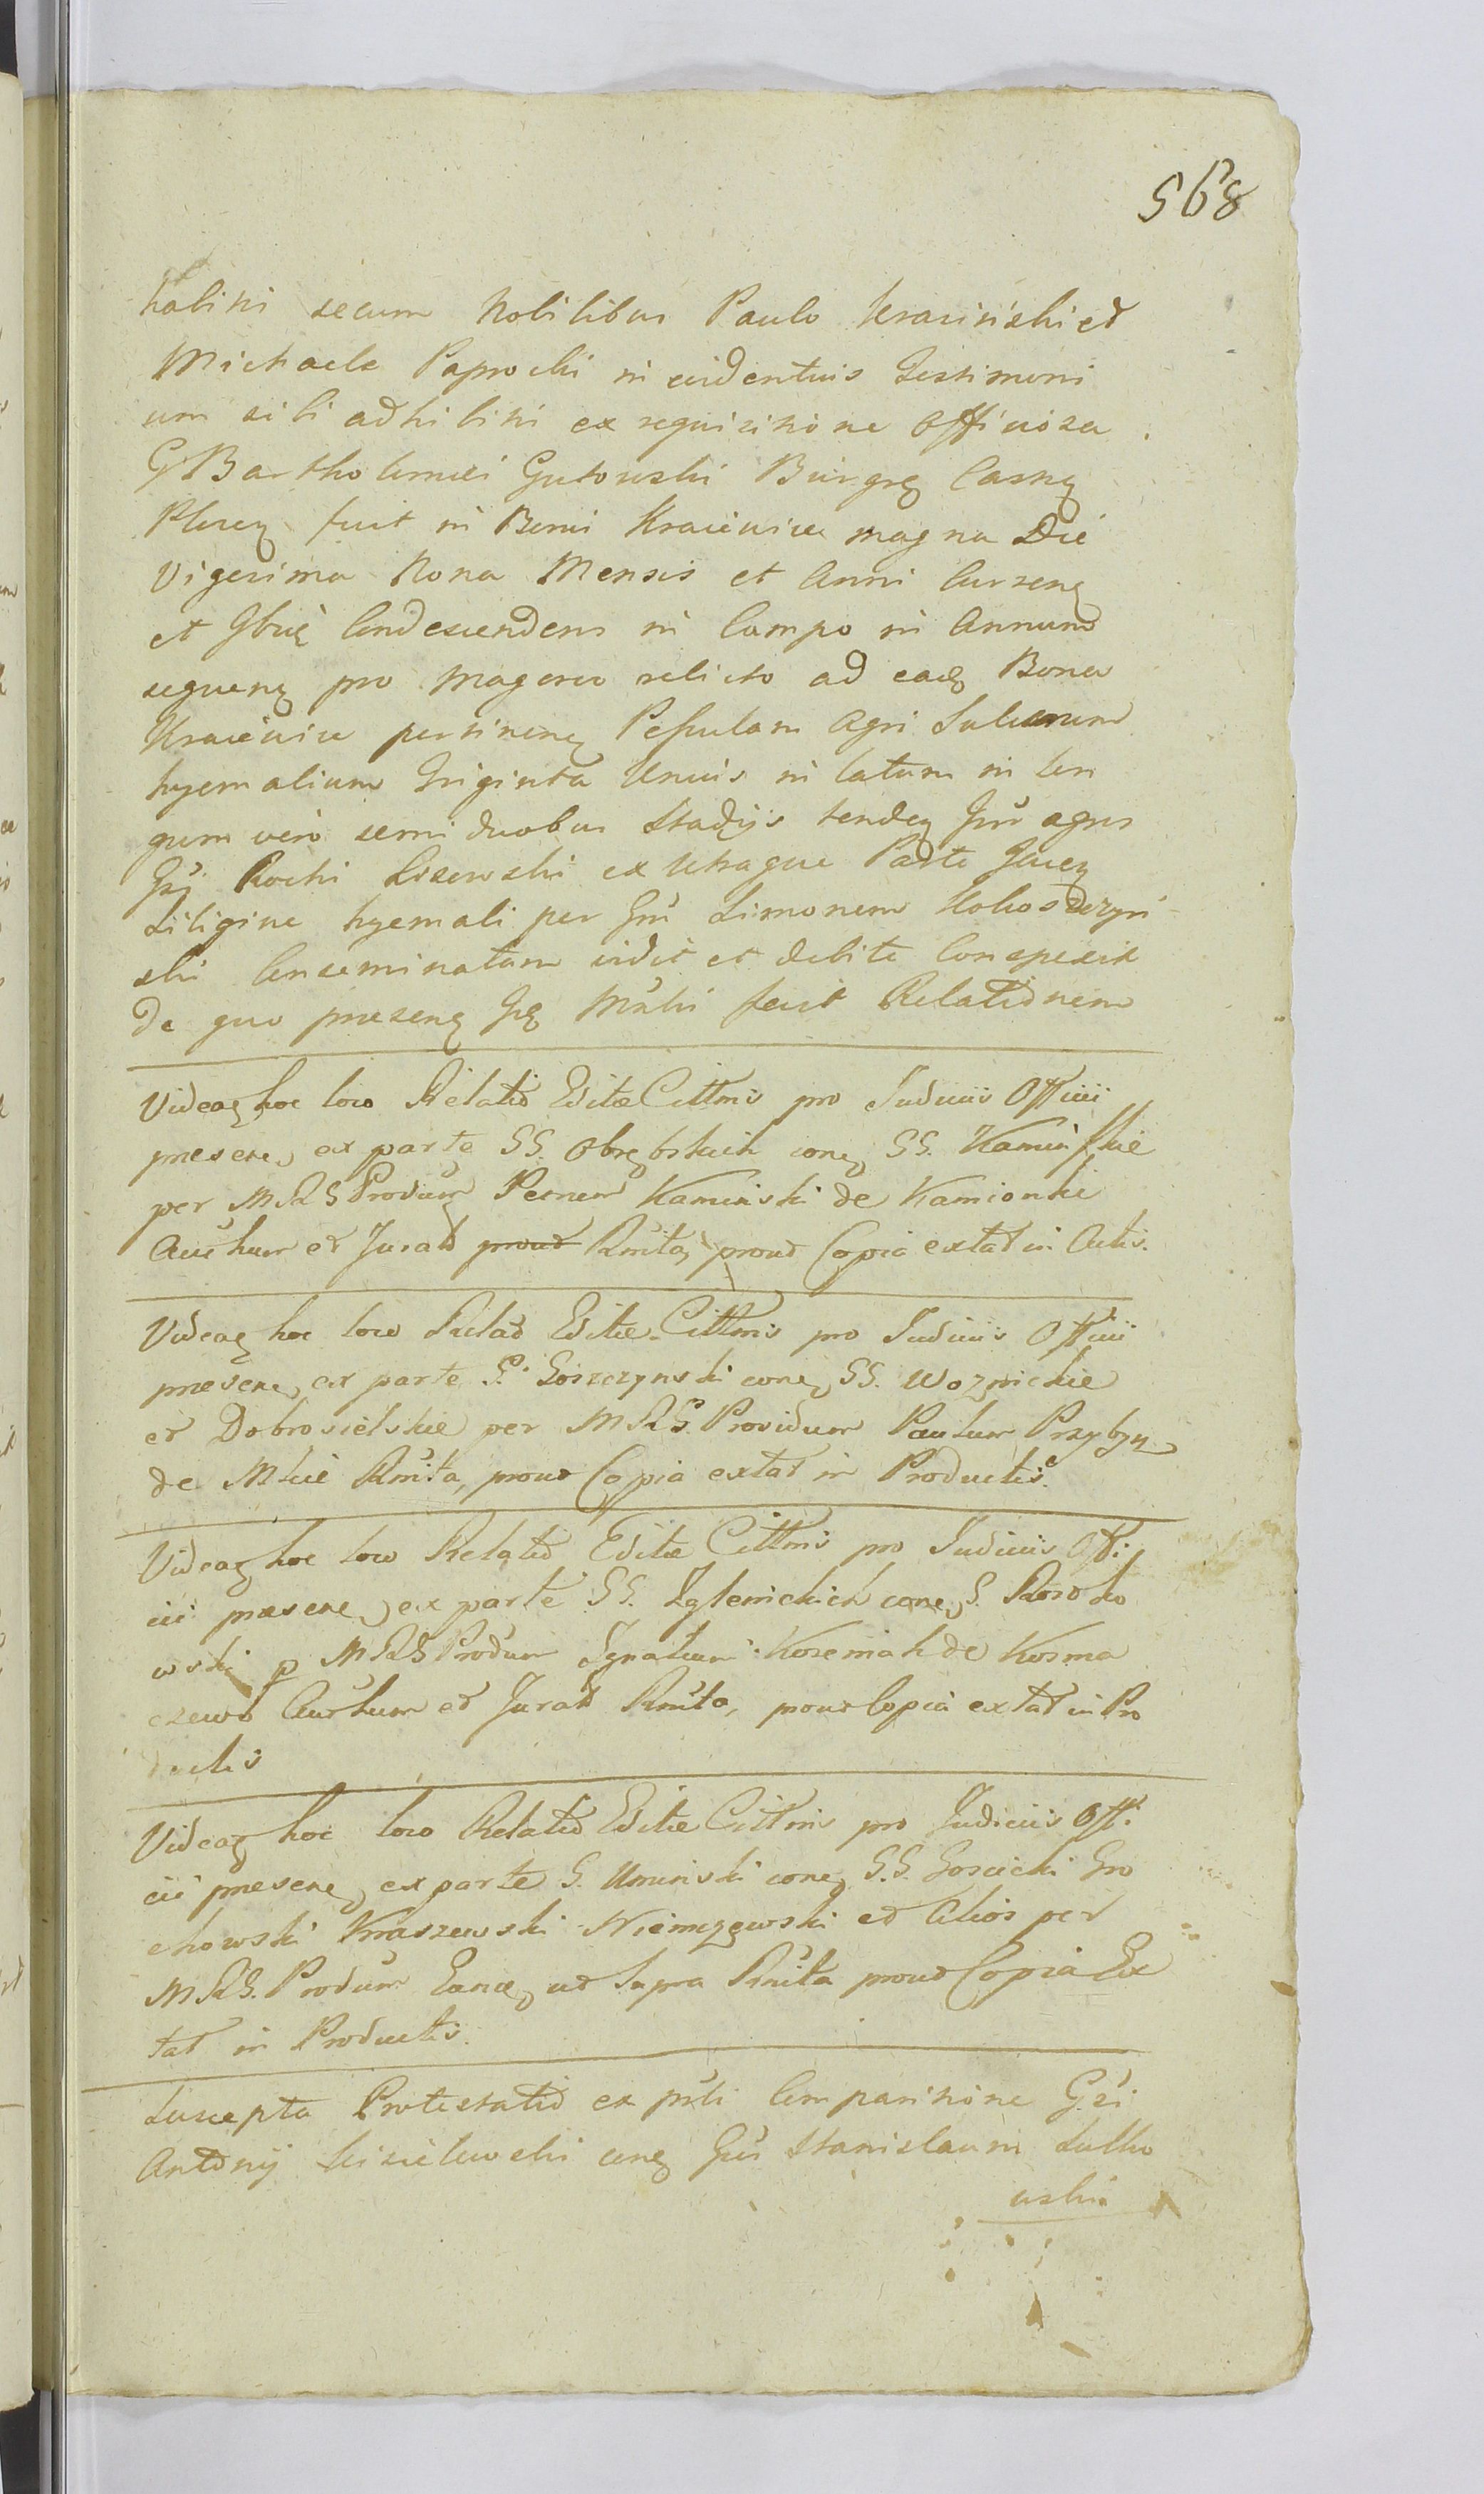 568
habiti secum Nobilibus Paulo Kraiński et
Michaele Paprocki in evidentius Testimoni
um sibi adhibiti ex requisitione officiosa
G Bartholomei Gutowski Burgrę Castrę
Plocę fuit in Bonis Kraiewice magna Die
Vigesima Nona Mensis et Anni Cursenę
et Condescendens in Campo in Annum
sequenę pro magerco relicto ad eadę Bona
Kraiewice pertinenę Pessulam agri Sulcorum
hyemalium Triginta Unius in latum in lon
gum vero semi duobus Stadijs tendeę agros
Rochi Lisewski ex Utraque Parte Jaceę
Siligine hyemali per Simonem Kokoszczyń
ski Conseminatam vidit et debite Conspexit
de quo praesenę fecit Relationem
Videaę hoc loco Relatio Editae Cittnis pro Judiciis Officii
praesenę ex parte SS. Obrębskich conę SS. Kamińskie
per MRS Produm Kamiński de Kamionki
Aućhum et Jurato prout Rnita, prout Copia extat in Actis.
Videaę hoc loco Relatio Editae Cittnis pro Judiciis Officii
praesenę ex parte G. Goszczynski conę SS. Woznickie
et Dobrosielskie per MRS. Providum Paulum Przybysz
de Rnita, prout Copia extat in Productis
Videaę hoc loco Relatio Editae Cittnis pro Judiciis Offi
cii praesenę ex parte SS. Zglenickich conę S.
wski p MRS Produm Ignatium Koseniak de Kosma
czewo Aućhum et Jurato Rnita, prout Copia extat in Pro
ductis
Videaę hoc loco Relatio Editae Cittnis pro Judiciis Offi
cii praesenę ex parte G. Uminski conę S.S. Goscicki Gro
chowski Kraszewski Niemczewski et Alios per
MRS. Produm ut Supra Rnita prout Copia Ex
tat in Productis.
Suscepta Protestatio ex Comparitione
Antonij Kisielewski conę Stanislaum Sulko
wski